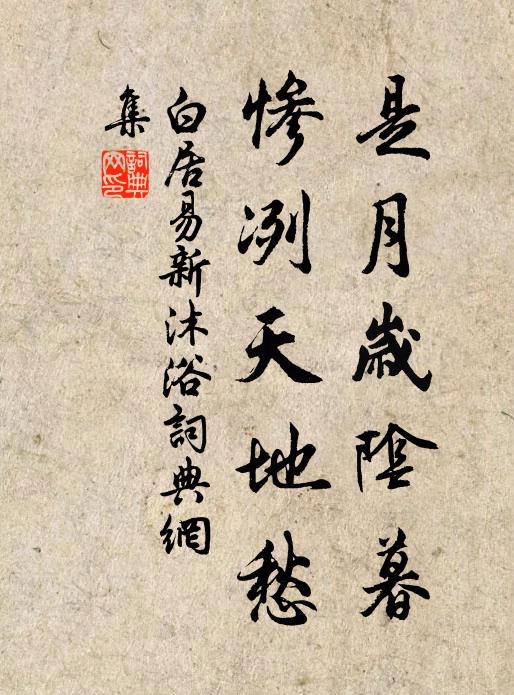 是月歲陰暮
慘冽天地愁
白居易新沐浴詞典網
集
詞典网印